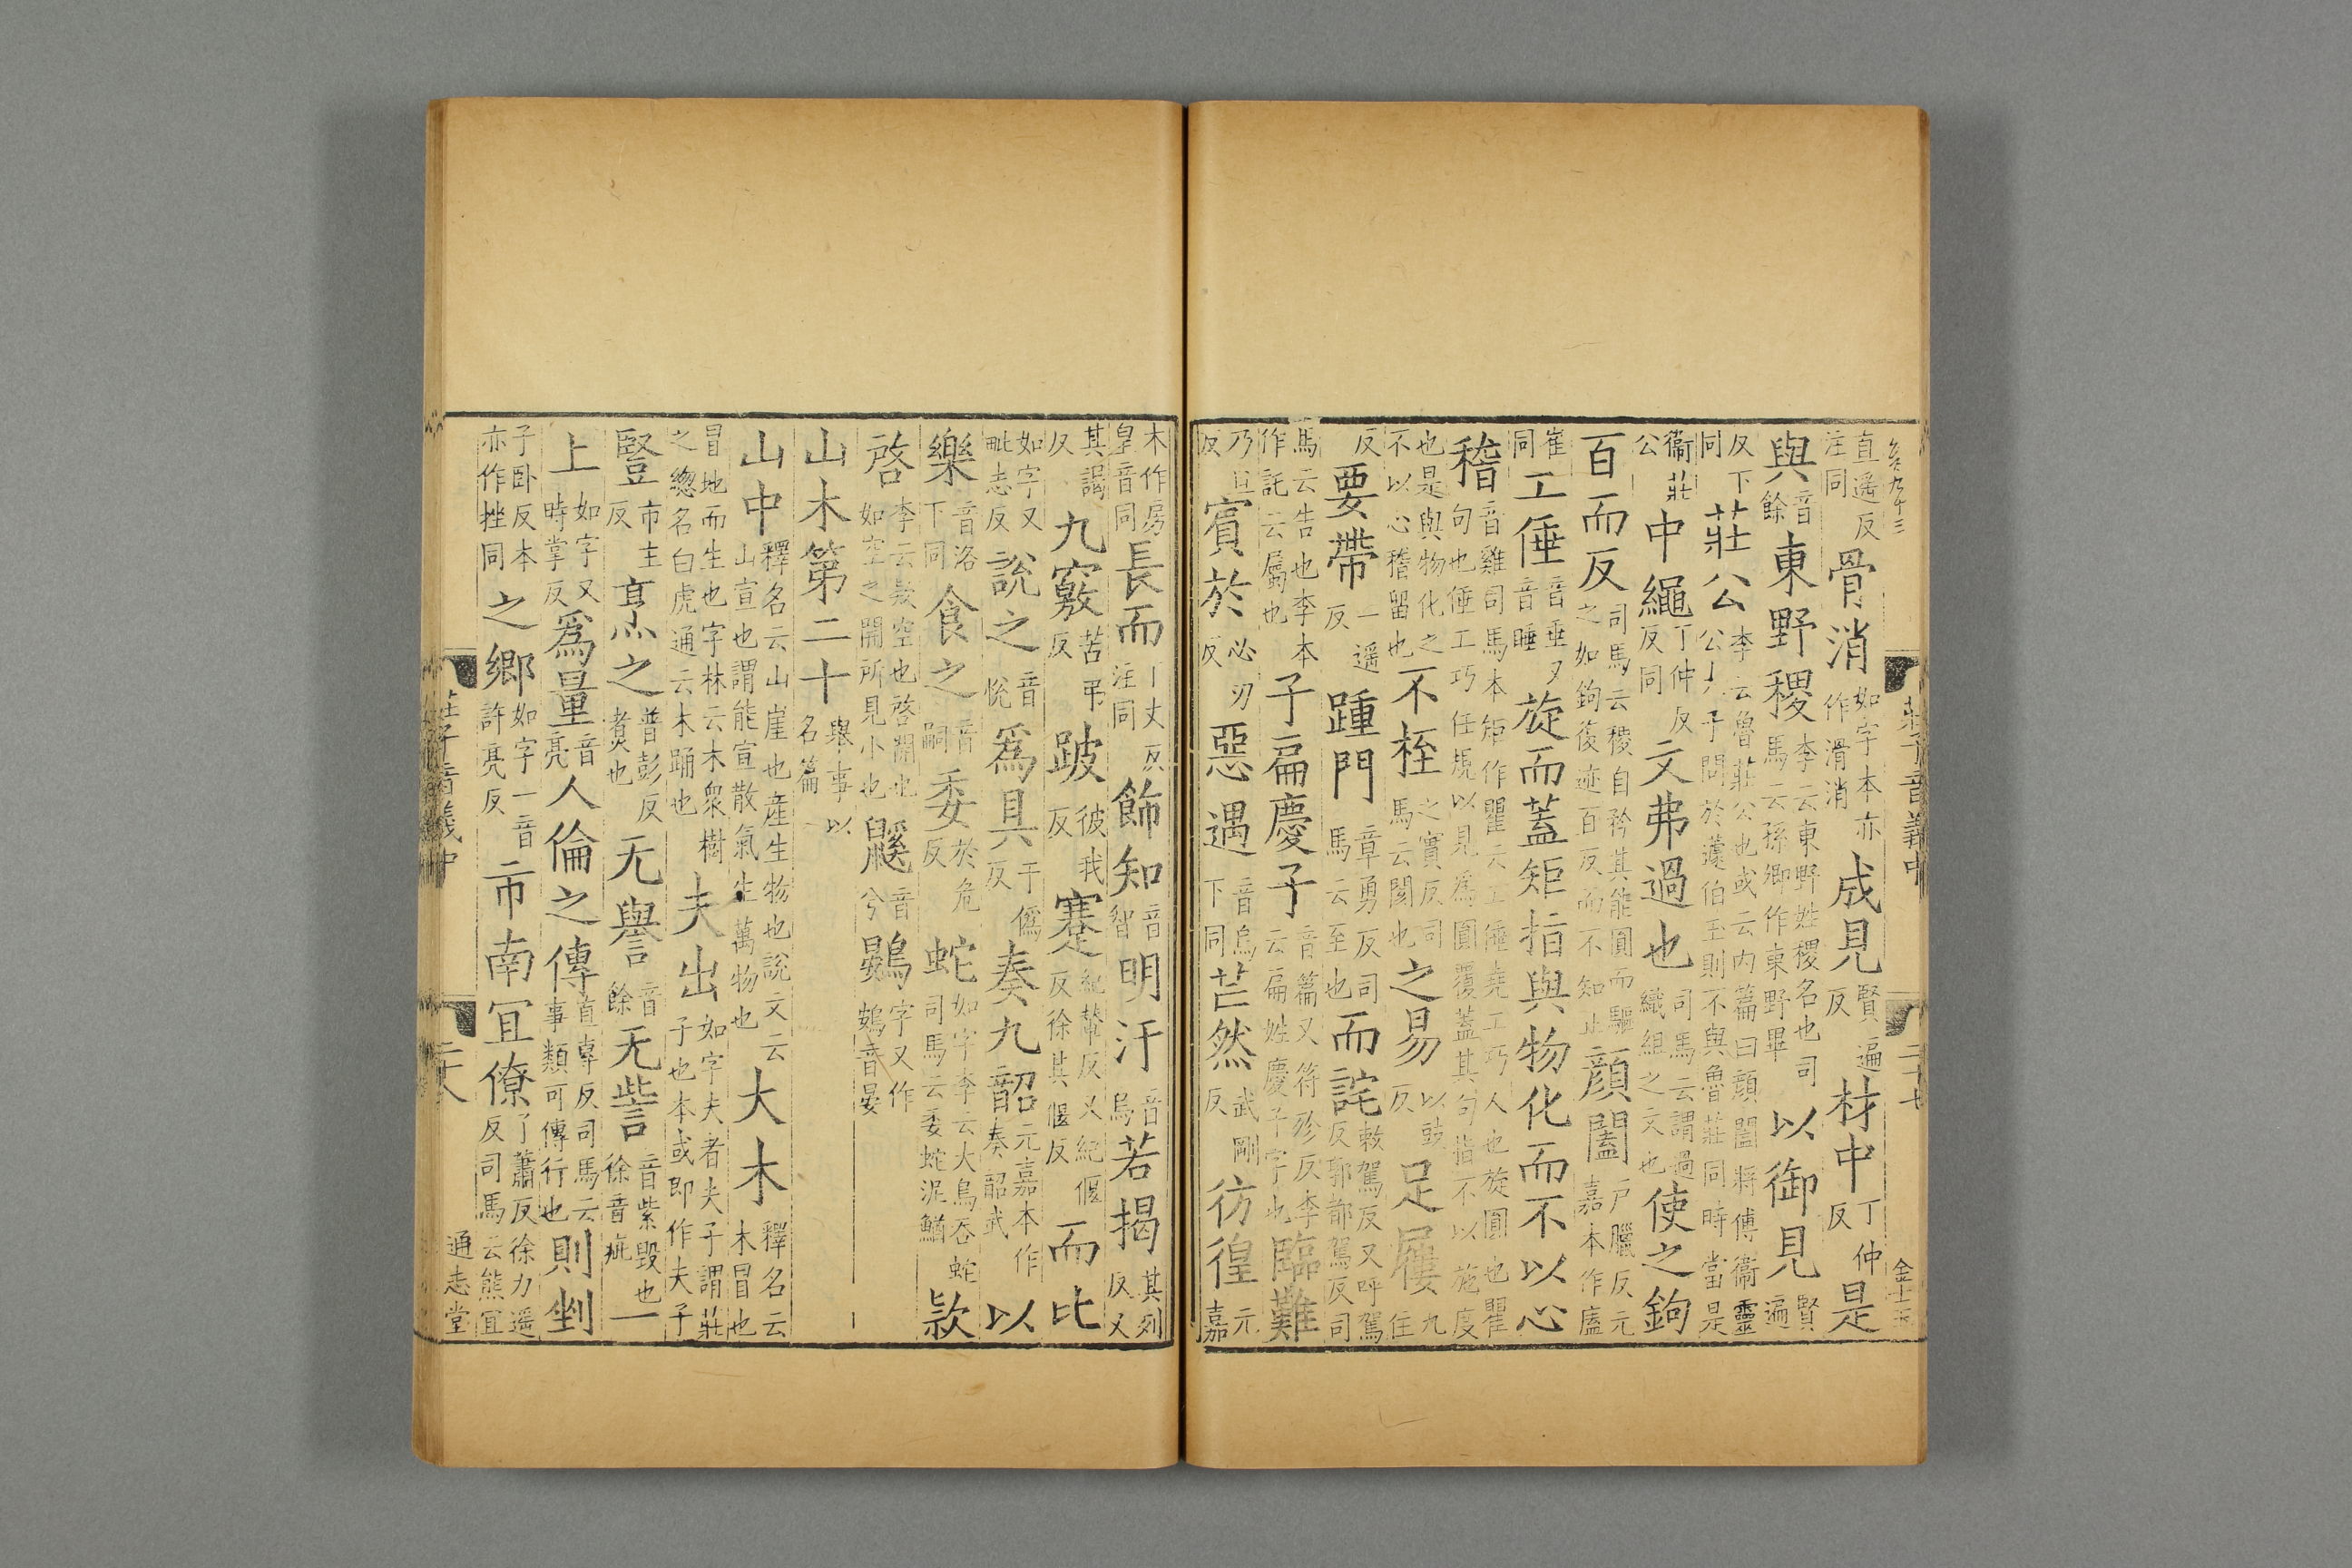 莊子音義中 二十七
直遥反注同骨消如字本亦作滑消成見賢遍反材中丁仲反是
與音餘東野稷李云東野姓稷名也司馬云孫卿作東野畢以御見賢遍
反下同莊公李云魯莊公也或云内篇曰顔闔將傅衞靈公大子問於蘧伯玉則不與魯莊同時當是
衞莊公中繩丁仲反同文弗過也司馬云謂過織組之文也使之鉤
百而反司馬云稷自矜其能圓而驅之如鉤復迹百反而不知止顔闔戸臘反元嘉本作廬
崔同工倕音垂又音睡旋而蓋矩指與物化而不以心
稽音雞司馬本矩作瞿云工倕堯工巧人也旋圓也瞿句也倕工巧任規以見爲圓覆蓋其句指不以施度
也是與物化之不以心稽留也不桎之實反司馬云閡也之易以豉反足屨九住
反要帶一遥反踵門章勇反司馬云至也而詫敕駕反又呼駕反郭都駕反司
馬云告也李本作託云屬也子扁慶子音篇又符殄反李云扁姓慶子字也臨難
乃旦反賓於必刃反惡遇音烏下同芒然武剛反彷徨元嘉
木作房皇音同長而丁丈反注同飾知音智明汙音烏若揭其列反又
其謁反九竅苦弔反跛彼我反蹇紀輦反又紀偃反徐其偃反而比
如字又毗志反說之音恱爲具于僞反奏九韶元嘉本作奏韶武以
樂音洛下同食之音嗣委於危反蛇如字李云大鳥吞蛇司馬云委蛇泥鰌款
啓李云款空也啓開也如空之開所見小也鼷音兮鷃字又作鴳音晏
山木第二十舉事以名篇
山中釋名云山産也産生物也說文云山宣也謂能宣散氣生萬物也大木釋名云木冒也
冒地而生也字林云木衆樹之緫名白虎通云木踊也夫出如字夫者夫子謂莊子也本或即作夫子
豎市主反烹之普彭反煑也无譽音餘无訾音紫毁也徐音疵一
上如字又時掌反爲量音亮人倫之傳直專反司馬云事類可傳行也則剉
子卧反本亦作挫同之鄉如字一音許亮反市南冝僚了蕭反徐力遥反司馬云熊冝
莊子音義中 二十八 通志堂